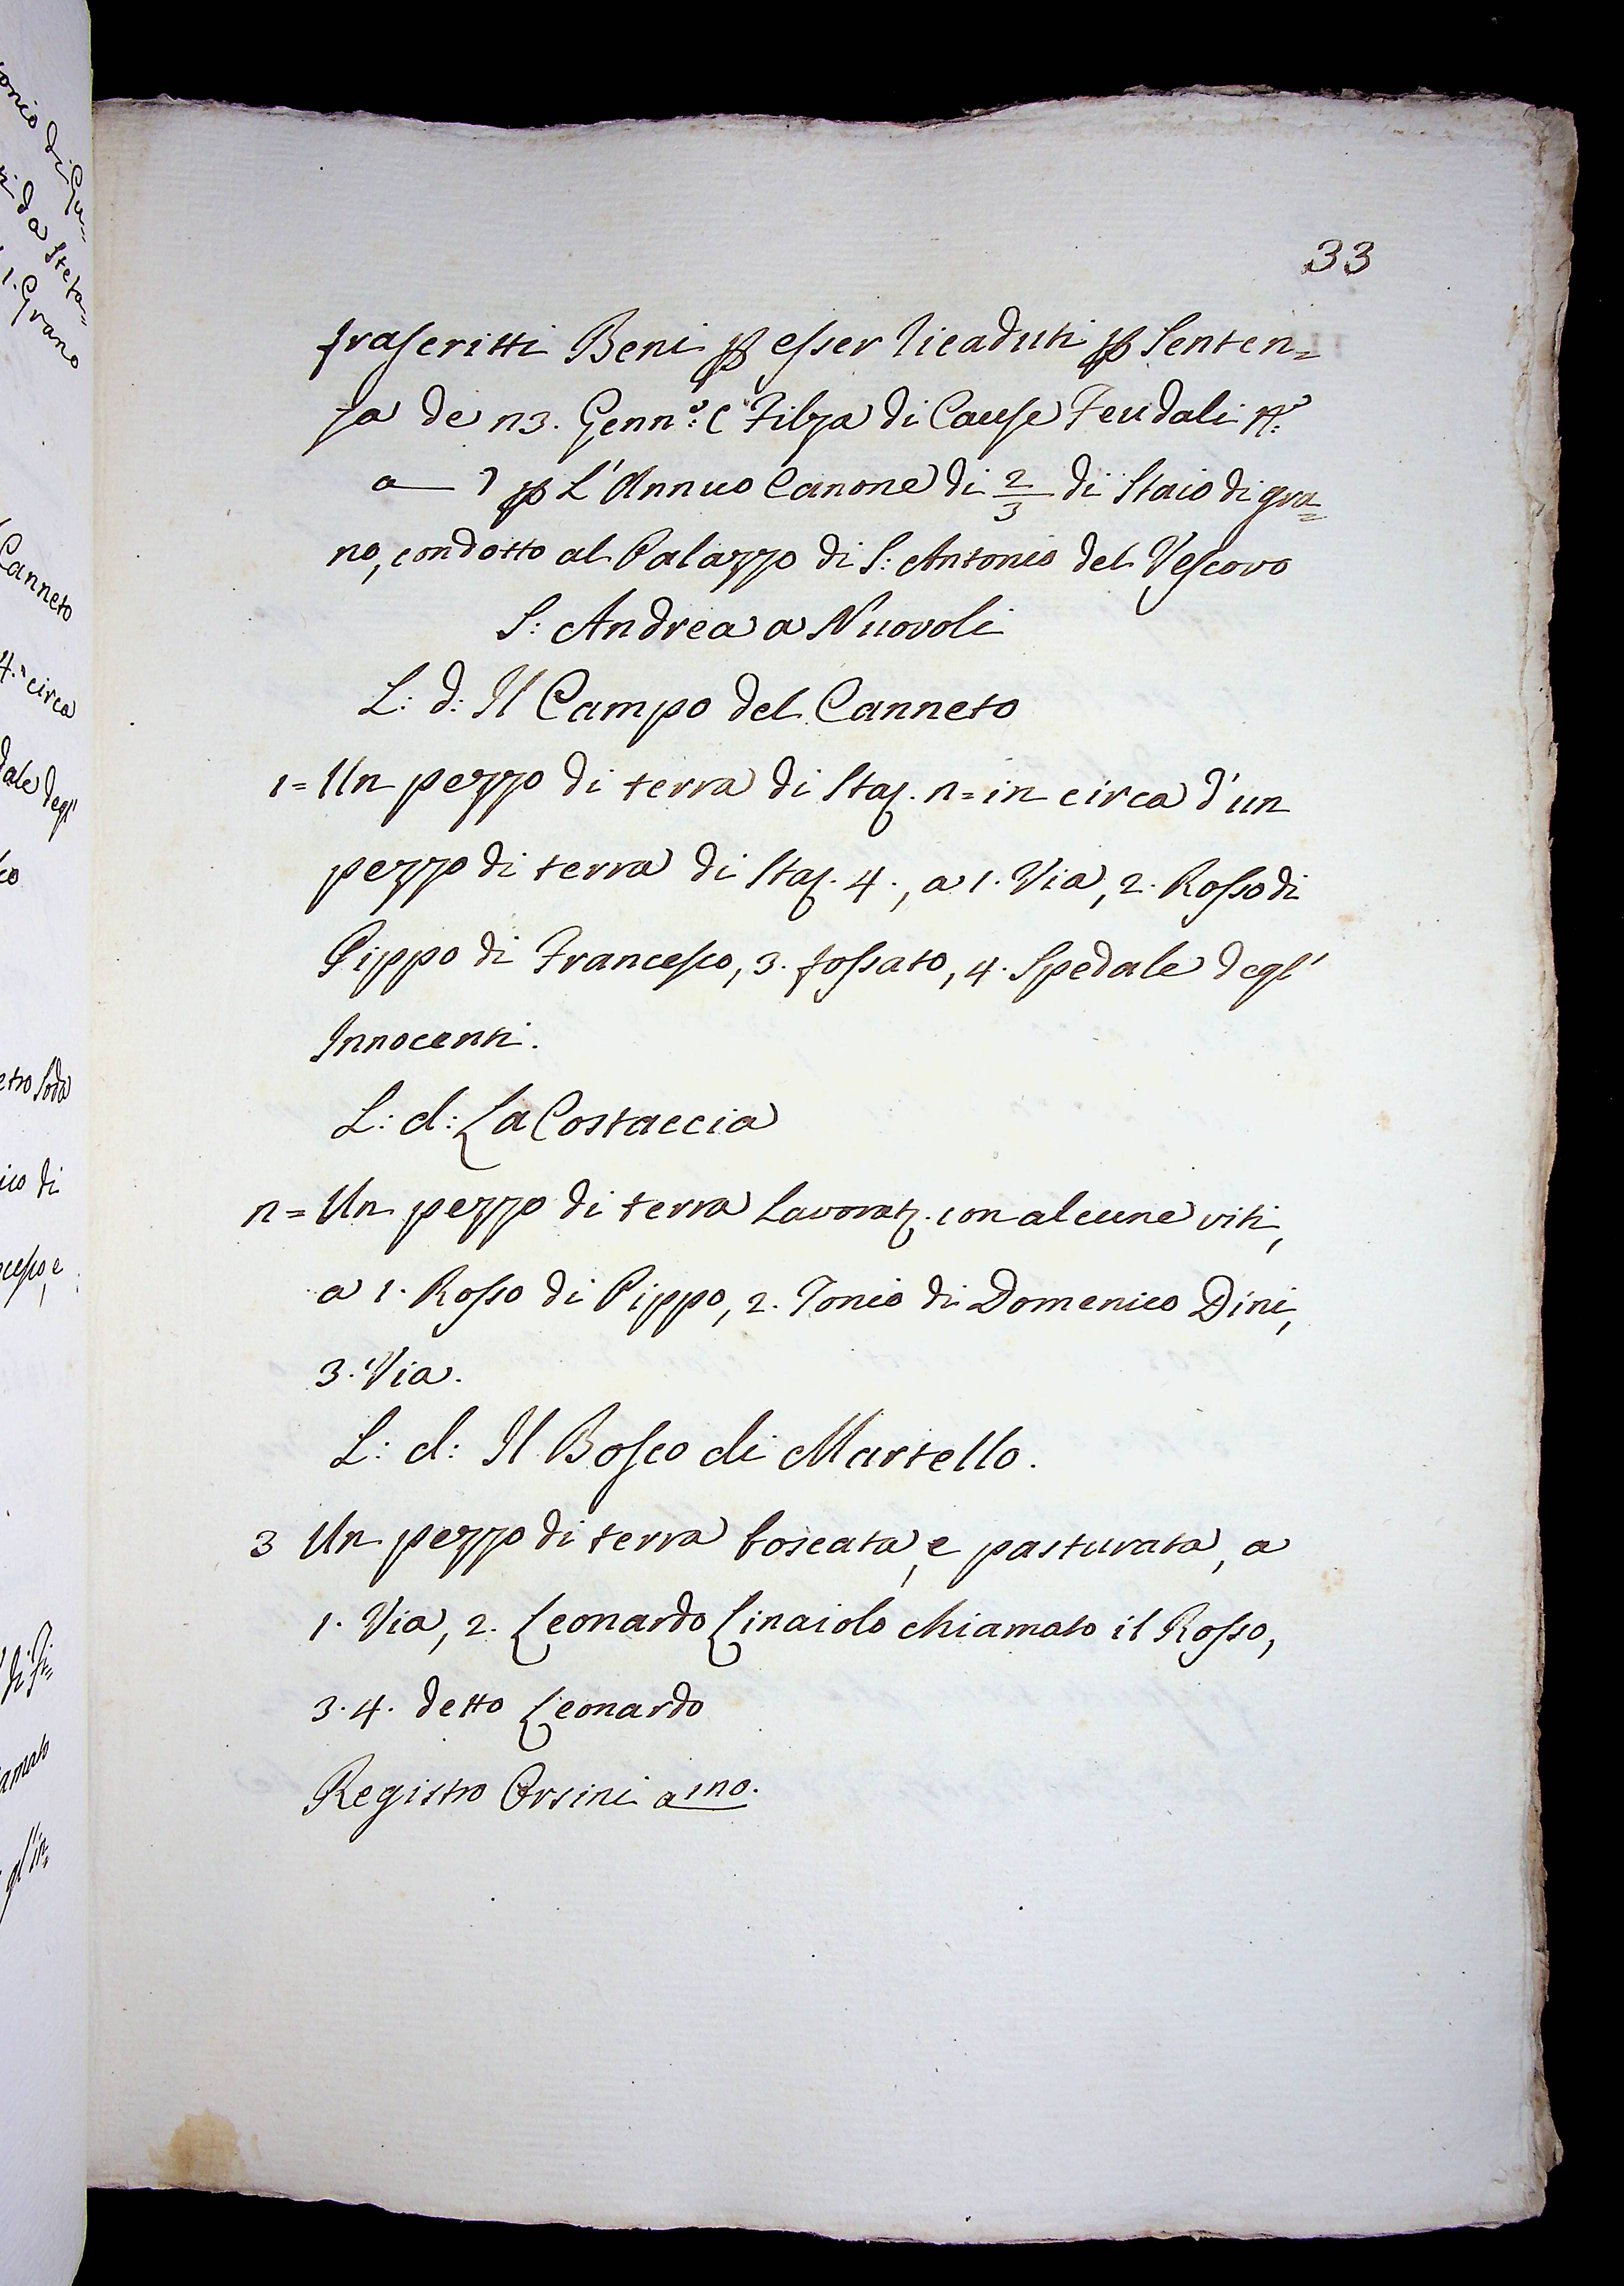 onio di Gu=
da Stefa=
1. Grano
Canneto
4. circa
dale degl'
co
etro Soda
ico di
cesco, e
di Pi=
amato
gl'in=
33
frascritti Beni ꝑ esser ricaduti ꝑ Senten=
za de 23. Genn.º ( Filza di Cause Feudali N.º
a — ) ꝑ L'Annuo Canone di 2/3 di Staio di gra=
no, condotto al Palazzo di S: Antonio del Vescovo
S: Andrea a Nuovoli
L: d: Il Campo del Canneto
1= Un pezzo di terra di Staj. 2= in circa d'un
pezzo di terra di Staj. 4., a 1. Via, 2. Rosso di
Pippo di Francesco, 3. fossato, 4. Spedale degl'
Innocenti.
L: d: La Costaccia
2= Un pezzo di terra Lavorat. con alcune viti,
a 1. Rosso di Pippo, 2. Tonio di Domenico Dini,
3. Via.
L: d: Il Bosco di Martello.
3 Un pezzo di terra boscata, e pasturata, a
1. Via, 2. Leonardo Linaiolo chiamato il Rosso,
3. 4. detto Leonardo
Registro Orsini a 120.